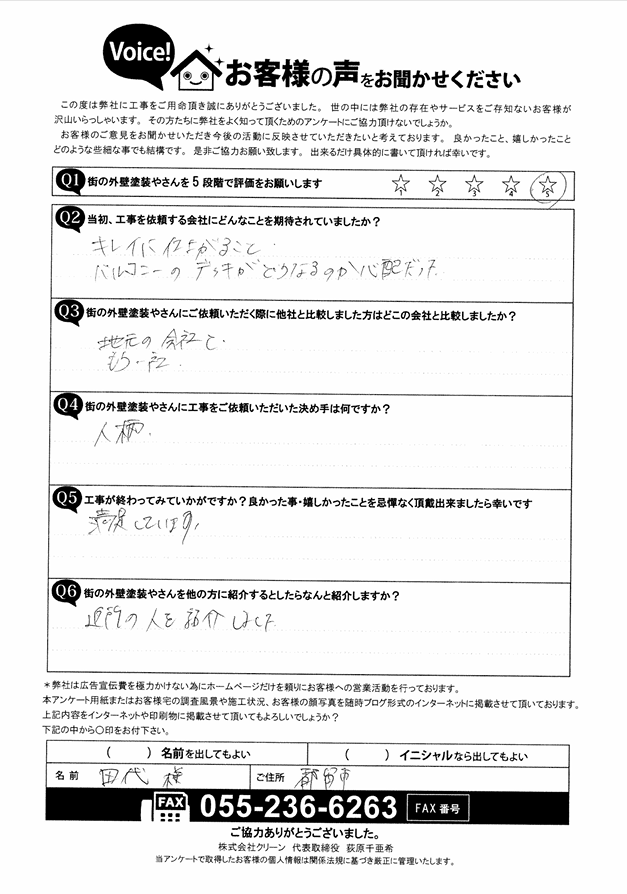 Voice!
お客様の声をお聞かせください
この度は弊社に工事をご用命頂き誠にありがとうございました。世の中には弊社の存在やサービスをご存知ないお客様が
沢山いらっしゃいます。その方たちに弊社をよく知って頂くためのアンケートにご協力頂けないでしょうか。
お客様のご意見をお聞かせいただき今後の活動に反映させていただきたいと考えております。良かったこと、嬉しかったこと
どのような些細な事でも結構です。是非ご協力お願い致します。出来るだけ具体的に書いて頂ければ幸いです。
Q1 街の外壁塗装やさんを5段階で評価をお願いします ☆1 ☆2 ☆3 ☆4 ☆5
Q2 当初、工事を依頼する会社にどんなことを期待されていましたか?
キレイに仕上がること
バルコニーのデッキがどうなるのか心配だった
Q3 街の外壁塗装やさんにご依頼いただく際に他社と比較しました方はどこの会社と比較しましたか?
地元の会社と
もう一社
Q4 街の外壁塗装やさんに工事をご依頼いただいた決め手は何ですか?
人柄
Q5 工事が終わってみていかがですか?良かった事・嬉しかったことを忌憚なく頂戴出来ましたら幸いです
満足しています
Q6 街の外壁塗装やさんを他の方に紹介するとしたらなんと紹介しますか?
近所の人を紹介しました
*弊社は広告宣伝費を極力かけない為にホームページだけを頼りにお客様への営業活動を行っております。
本アンケート用紙またはお客様宅の調査風景や施工状況、お客様の顔写真を随時ブログ形式のインターネットに掲載させて頂いております。
上記内容をインターネットや印刷物に掲載させて頂いてもよろしいでしょうか?
下記の中から○印をお付下さい。
( ) 名前を出してもよい ( ) イニシャルなら出してもよい
名前 田代 様 ご住所 都留市
FAX 055-236-6263 FAX番号
ご協力ありがとうございました。
株式会社クリーン 代表取締役 荻原千亜希
当アンケートで取得したお客様の個人情報は関係法規に基づき厳正に管理いたします。